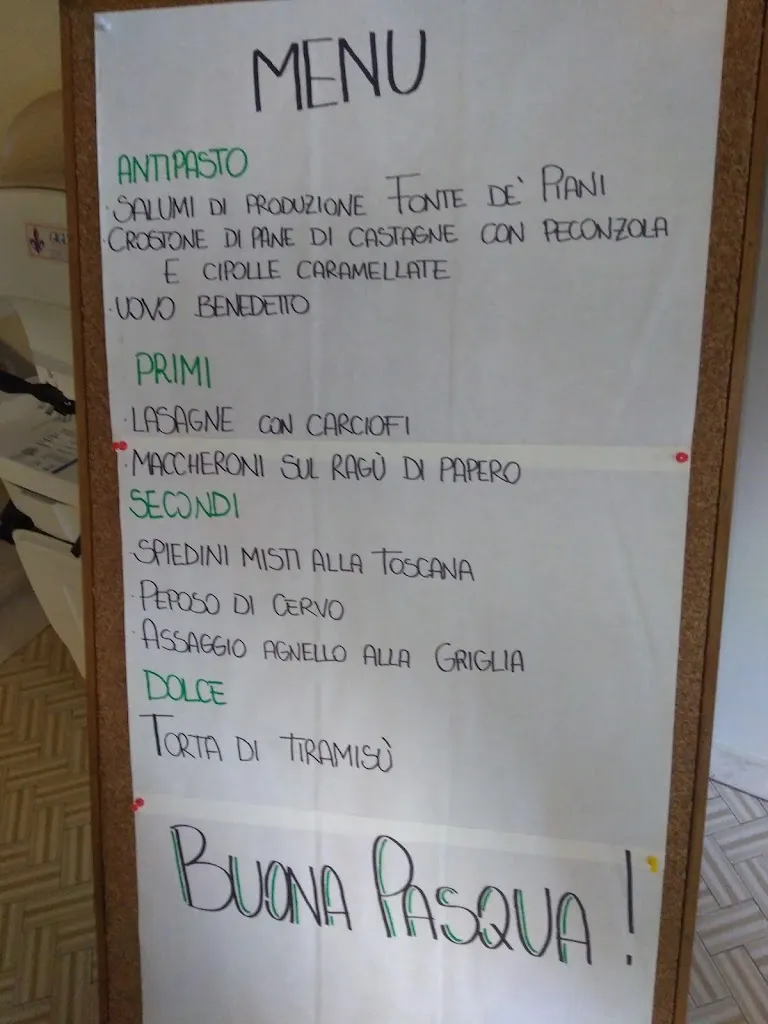 MENU
ANTIPASTO
· SALUMI DI PRODUZIONE FONTE DE' PIANI
· CROSTONE DI PANE DI CASTAGNE CON PECONZOLA
E CIPOLLE CARAMELLATE
· UOVO BENEDETTO
PRIMI
· LASAGNE CON CARCIOFI
· MACCHERONI SUL RAGÙ DI PAPERO
SECONDI
· SPIEDINI MISTI ALLA TOSCANA
· PEPOSO DI CERVO
· ASSAGGIO AGNELLO ALLA GRIGLIA
DOLCE
TORTA DI TIRAMISÙ
BUONA PASQUA!